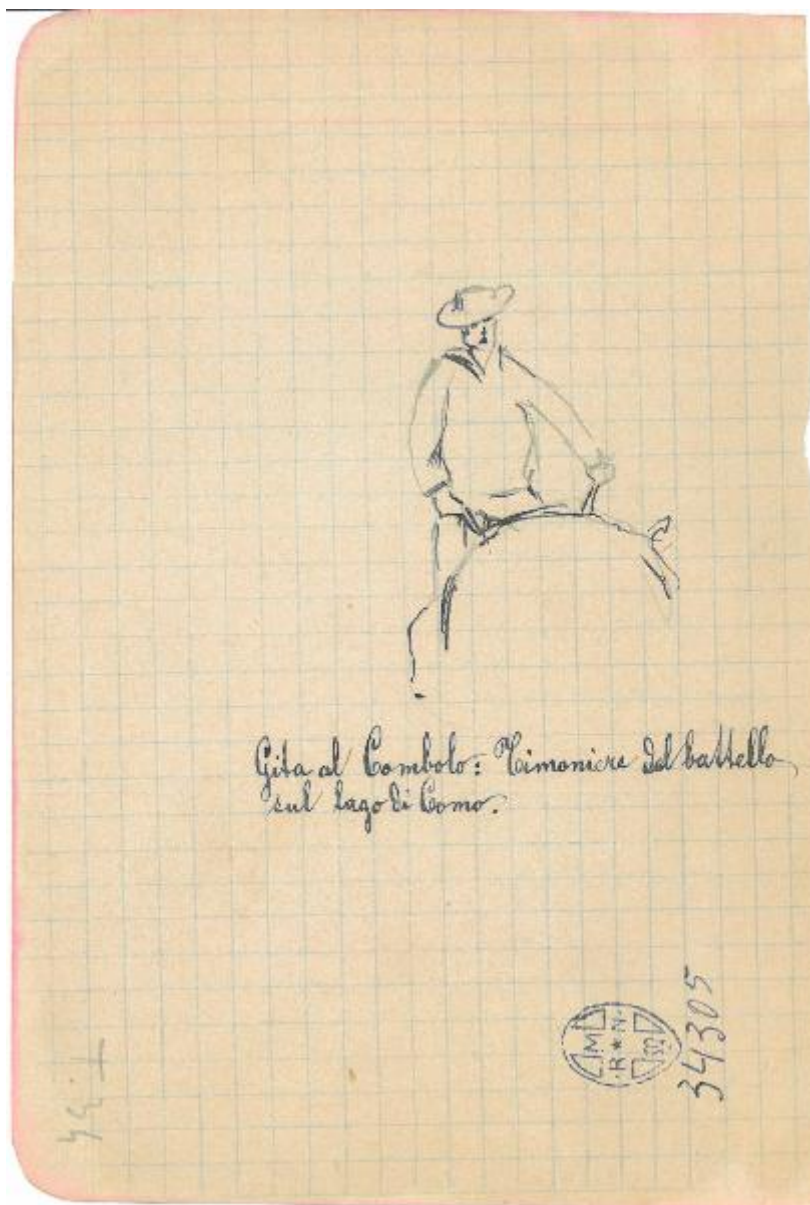 Gita al Combolo: Timoniere del battello
sul lago di Como.
M
R*N
34305